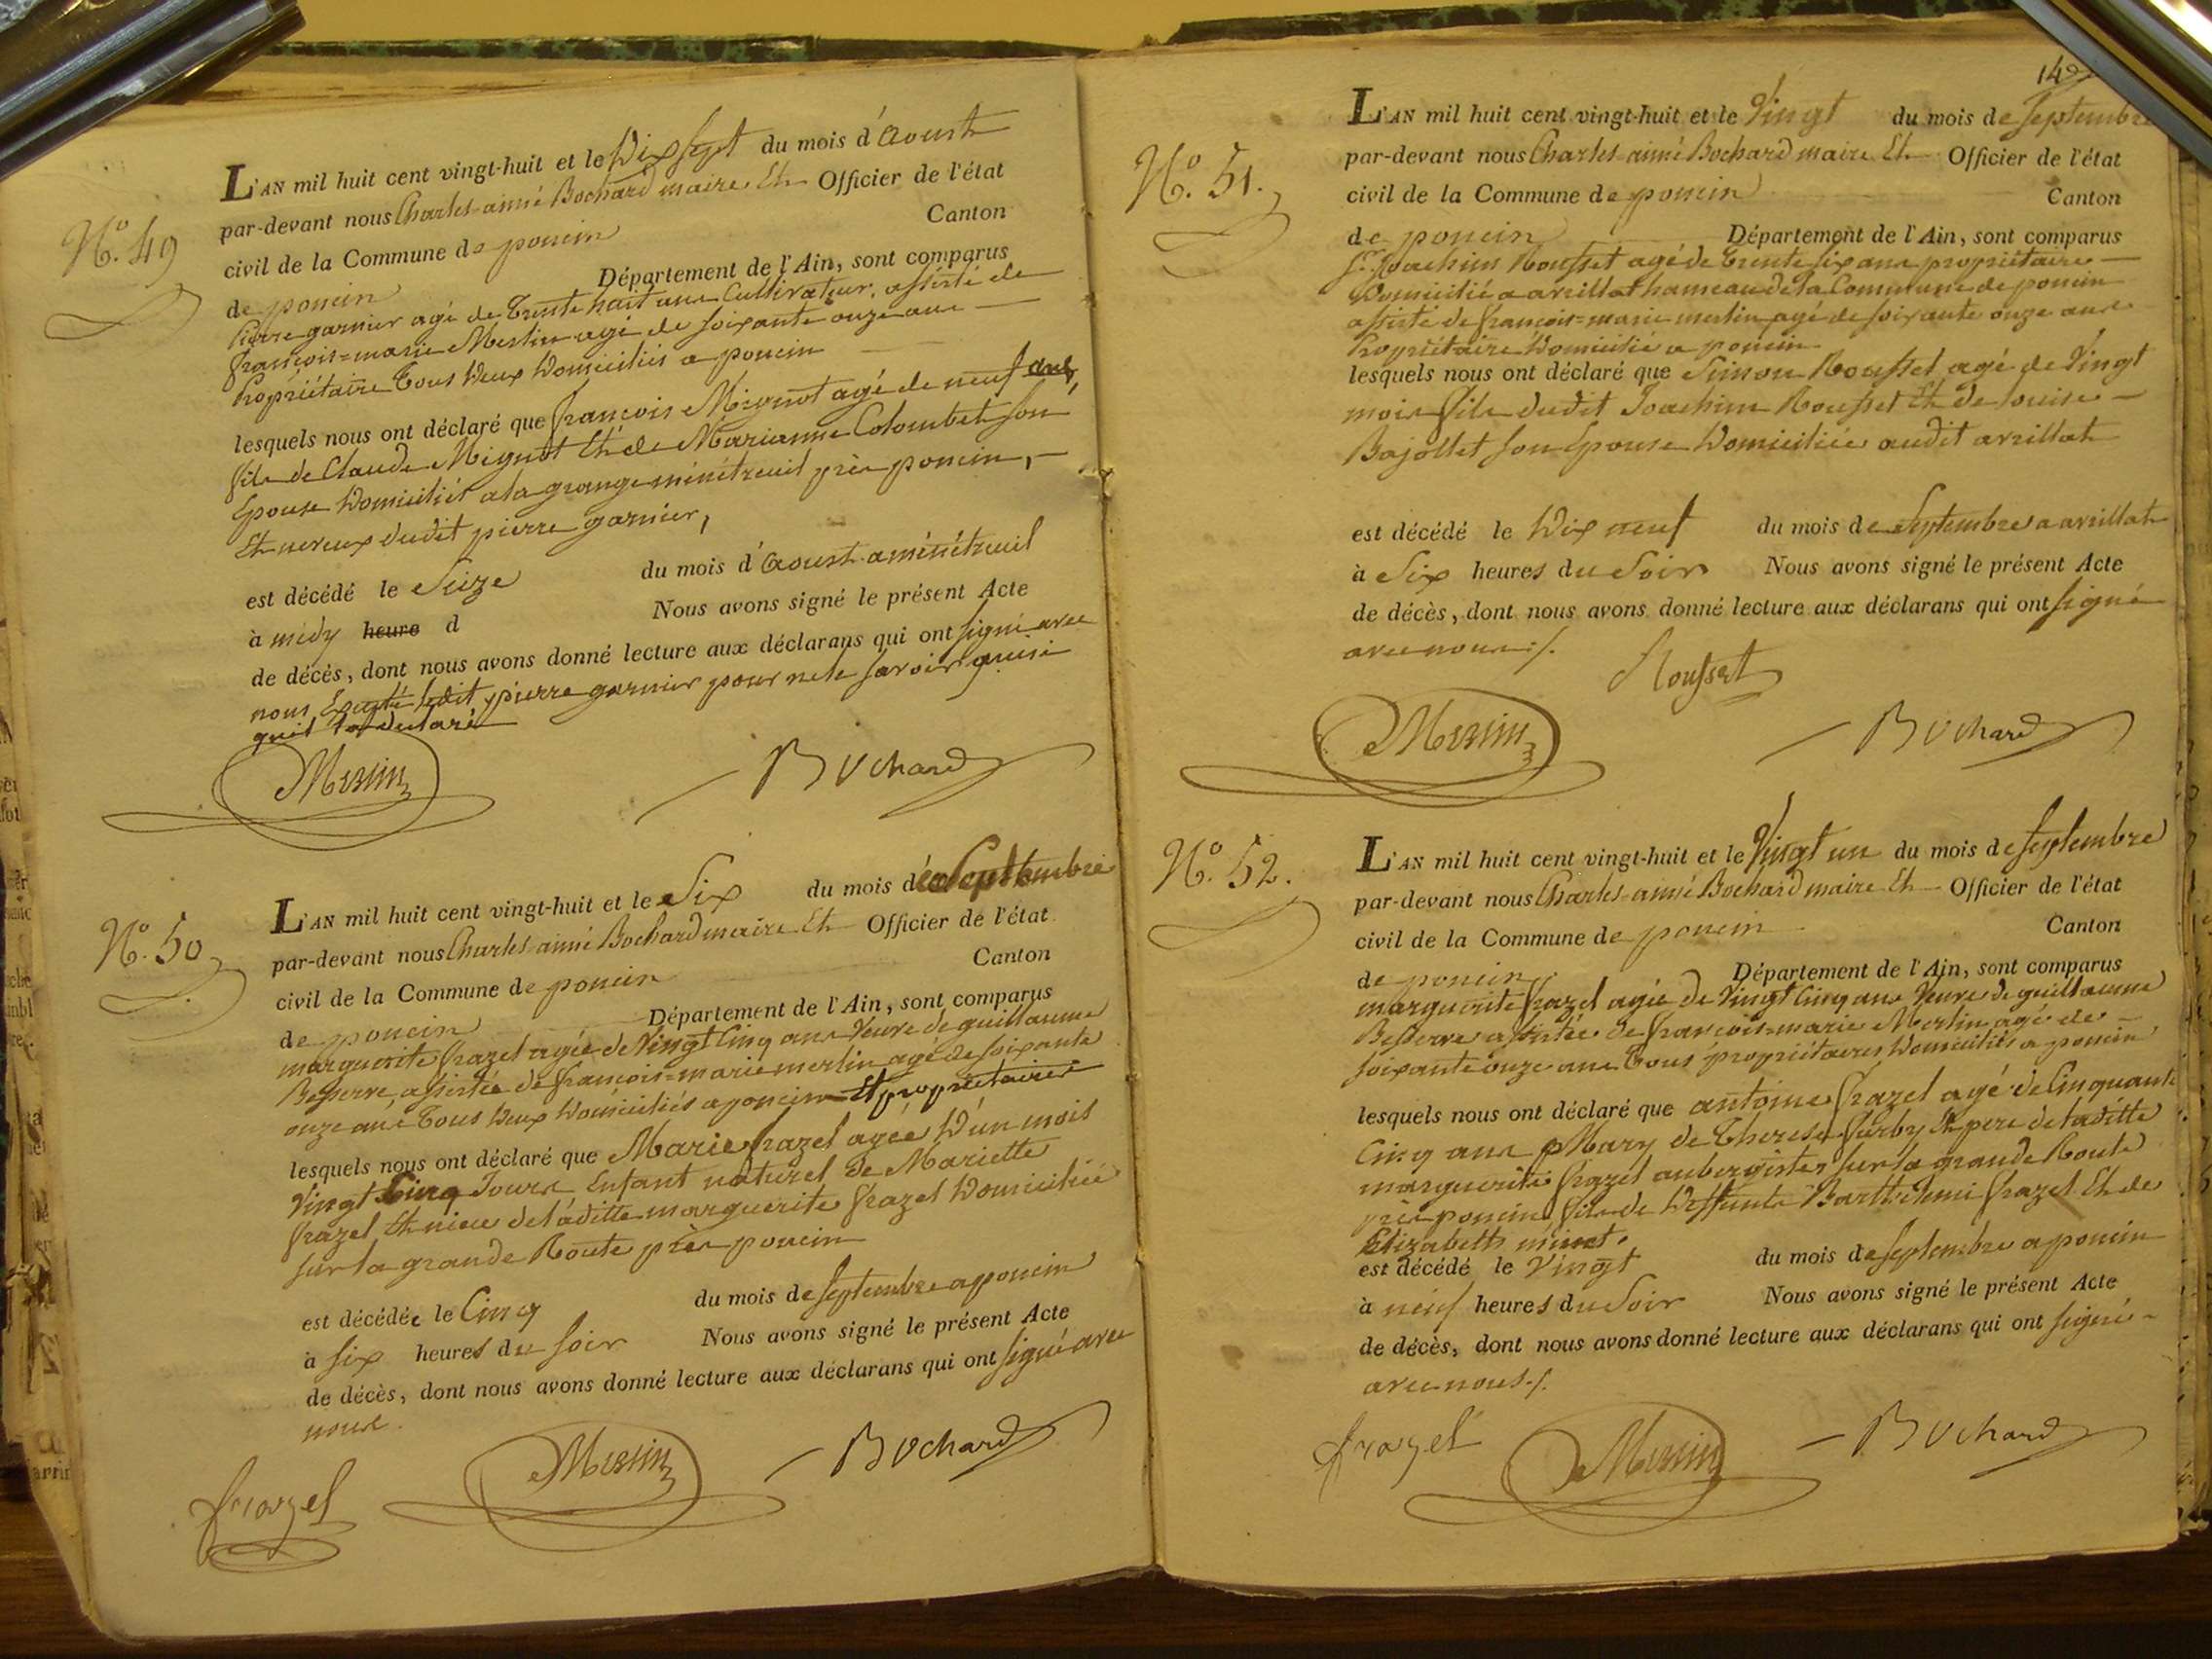 N.o 49
L'AN mil huit cent vingt-huit et le Dix sept du mois d'Aoust
par-devant nous Charles aimé Bochard maire Et Officier de l'état
civil de la Commune de poncin Canton
de poncin Département de l'Ain, sont comparus
Pierre garnier agé de Trente huit ans Cultivateur, assisté de
françois=marie Merlin agé de soixante onze ans
Propriétaire Tous Deux Domiciliés a poncin
lesquels nous ont déclaré que françois Mignot agé de neuf ans
fils de Claude Mignot Et de Marianne Colombet son
Epouse Domiciliés a la grange ménétreuil près poncin,
Et neveux dudit pierre garnier,
est décédé le Seize du mois d'Aoust a ménétreuil
à midy heure d Nous avons signé le présent Acte
de décès, dont nous avons donné lecture aux déclarans qui ont signé avec
nous Excepté ledit pierre garnier pour ne le savoir ainsi
quil la declaré
Merlin Bochard
N.o 50
L'AN mil huit cent vingt-huit et le Six du mois de Septembre
par-devant nous Charles aimé Bochard maire Et Officier de l'état
civil de la Commune de poncin Canton
de poncin Département de l'Ain, sont comparus
marguerite frazel agée de Vingt Cinq ans Veuve de guillaume
Besserve assistée de françois=marie merlin agé de soixante
onze ans Tous Deux Domiciliés a poncin Et propriétaires
lesquels nous ont déclaré que Marie frazel agée D'un mois
Vingt Cinq Jours Enfant naturel de Mariette
frazel Et niece de laditte marguerite frazel Domiciliée
sur la grande Route près poncin
est décédée le Cinq du mois de septembre a poncin
à six heures du soir Nous avons signé le présent Acte
de décès, dont nous avons donné lecture aux déclarans qui ont signé avec
nous.
frazel Merlin Bochard
N.o 51.
L'AN mil huit cent vingt-huit et le Vingt du mois de septembre
par-devant nous Charles aimé Bochard maire Et Officier de l'état
civil de la Commune de poncin Canton
de poncin Département de l'Ain, sont comparus
Sr. Joachim Rousset agé de Trente six ans propriétaire
Domicilié a arcillat hameau de la Commune de poncin
assisté de françois=marie merlin agé de soixante onze ans
Propriétaire Domicilié a poncin
lesquels nous ont déclaré que Simon Rousset agé de Vingt
mois fils dudit Joachim Rousset Et de louise
Bajollet son Epouse Domiciliée audit arcillat
est décédé le Dix neuf du mois de Septembre a arcillat
à Six heures du Soir Nous avons signé le présent Acte
de décès, dont nous avons donné lecture aux déclarans qui ont signé
avec nous ./.
Rousset
Merlin Bochard
N.o 52.
L'AN mil huit cent vingt-huit et le Vingt un du mois de septembre
par-devant nous Charles aimé Bochard maire Et Officier de l'état
civil de la Commune de poncin Canton
de poncin Département de l'Ain, sont comparus
marguerite frazel agée de Vingt Cinq ans Veuve de guillaume
Besserve assistée de françois=marie Merlin agé de
soixante onze ans Tous propriétaires Domiciliés a poncin
lesquels nous ont déclaré que antoine frazel agé de Cinquante
Cinq ans Mary de Therese Et pere de laditte
marguerite frazel aubergiste sur la grande Route
près poncin fils de Deffunts Barthelemi frazel Et de
Elizabeth
est décédé le Vingt du mois de septembre a poncin
à neuf heures du Soir Nous avons signé le présent Acte
de décès, dont nous avons donné lecture aux déclarans qui ont signé
avec nous ./.
frazel Merlin Bochard